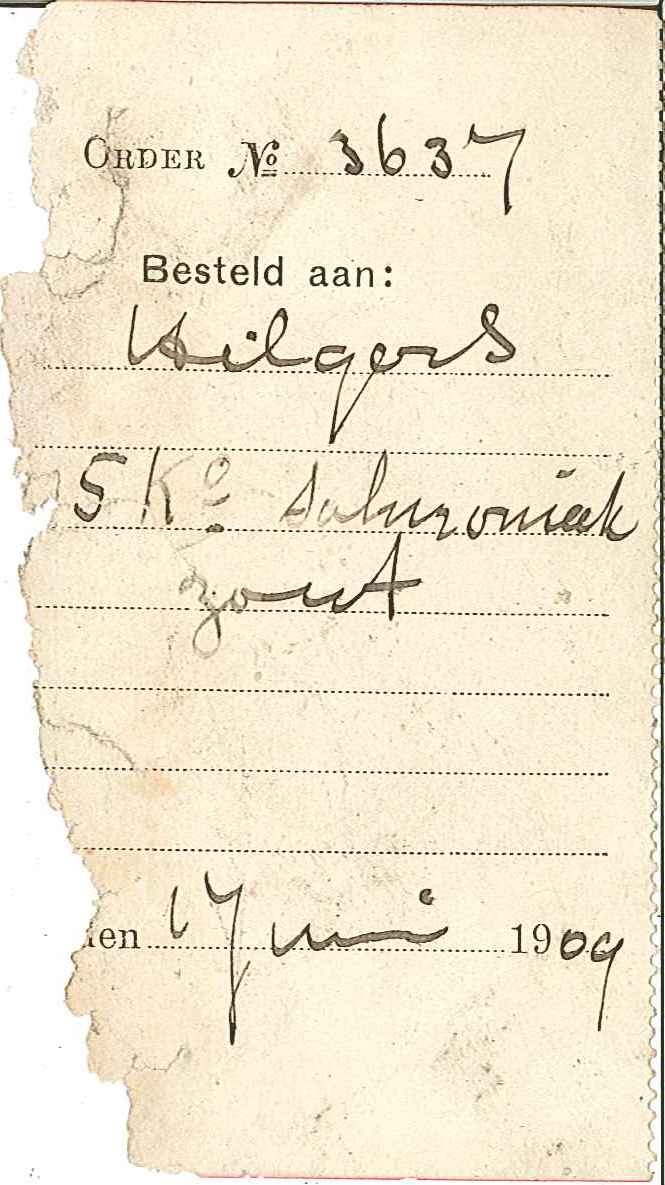 ORDER № 3637
Besteld aan:
Hilgers
5 Ko salmoniak
zout
den 17 Juni 1909